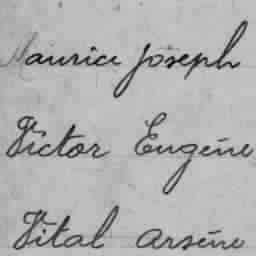 Maurice Joseph
Victor Eugène
Vital Arsène